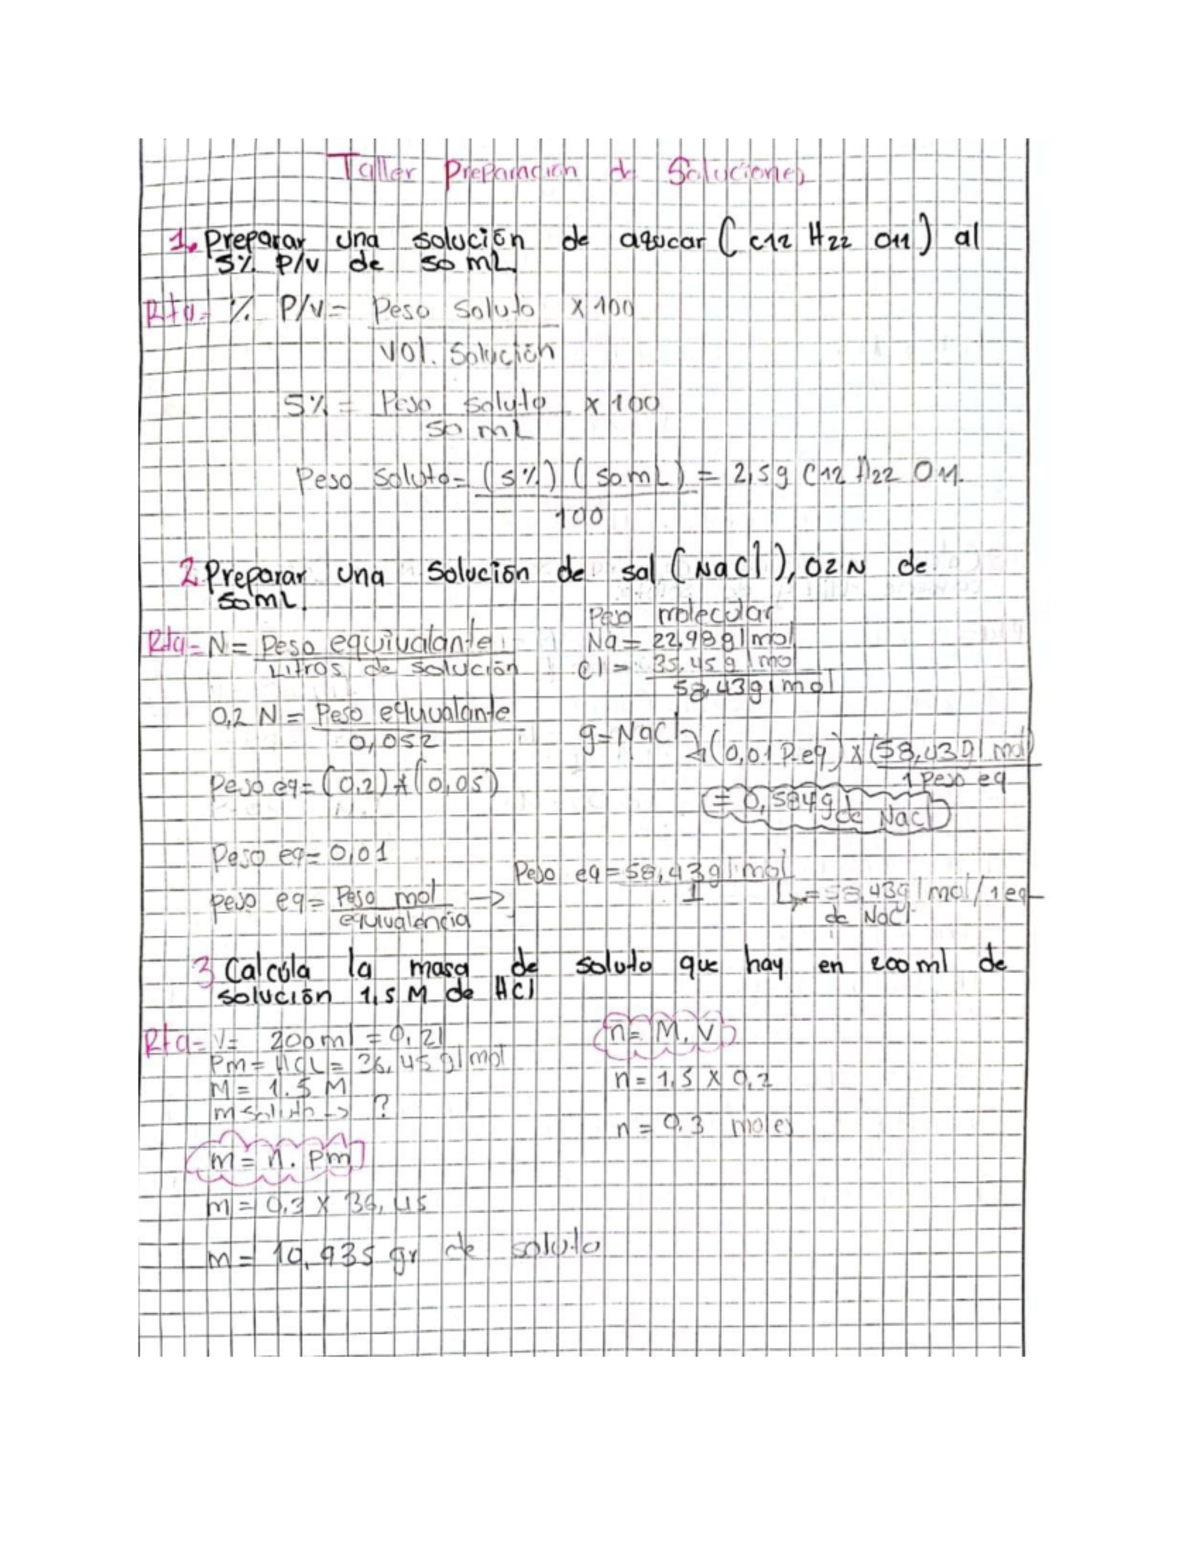 Taller Preparación de Soluciones
1. Preparar una solución de azucar (C12 H22 O11) al
5% P/V de 50 mL
Rta= % P/V = Peso Soluto X 100
Vol. Solución
5% = Peso soluto X 100
50 mL
Peso Soluto = (5%) (50mL) = 2,5g C12 H22 O11.
100
2 Preparar una Solución de sal (NaCl), 02N de
50mL.
Rta= N = Peso equivalante
Litros de solución
Peso molecular
Na = 22,98g/mol
Cl = 35,45g/mo
58,43g/mol
0,2 N = Peso equivalante
0,052
g=NaCl → (0,01 P.eq) X (58,43g/mol)
1 Peso eq
= 0,584g de NaCl
Peso eq = (0.2) * (0,05)
Peso eq = 0,01
peso eq = Peso mol →
equivalencia
Peso eq = 58,43g/mol
1
↳ = 58,43g/mol/1eq
de NaCl
3 Calcula la masa de soluto que hay en 200ml de
solución 1,5 M de HCl
Rta= V= 200ml = 0,2l
Pm = HCL = 36,45g/mol
M = 1.5 M
m soluto → ?
n = M. V
n = 1,5 X 0,2
n = 0.3 moles
m = n. Pm
m = 0,3 X 36,45
m = 10,935 gr de soluto